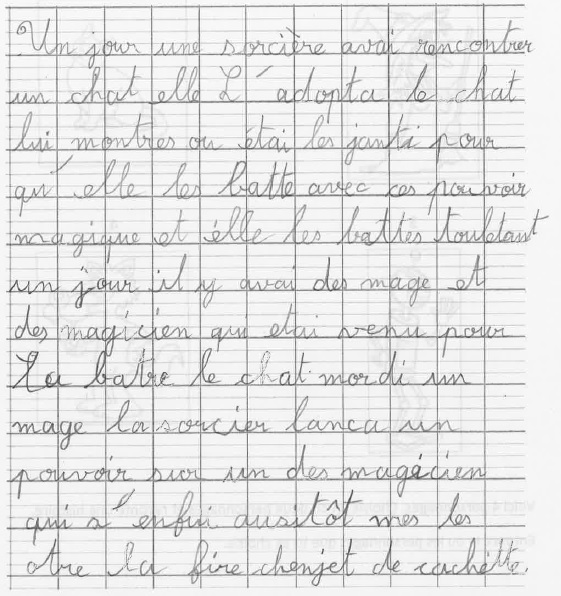 Un jour une sorcière avai rencontrer
un chat elle L'adopta le chat
lui montres ou étai les janti pour
qu'elle les batte avec ces pouvoir
magique et élle les battes toultant
un jour il y avai des mage et
des magicien qui etai venu pour
La batre le chat mordi un
mage la sorcier lanca un
pouvoir sur un des magicien
qui s'enfui ausitôt mes les
otre la fire chenjet de cachètte.